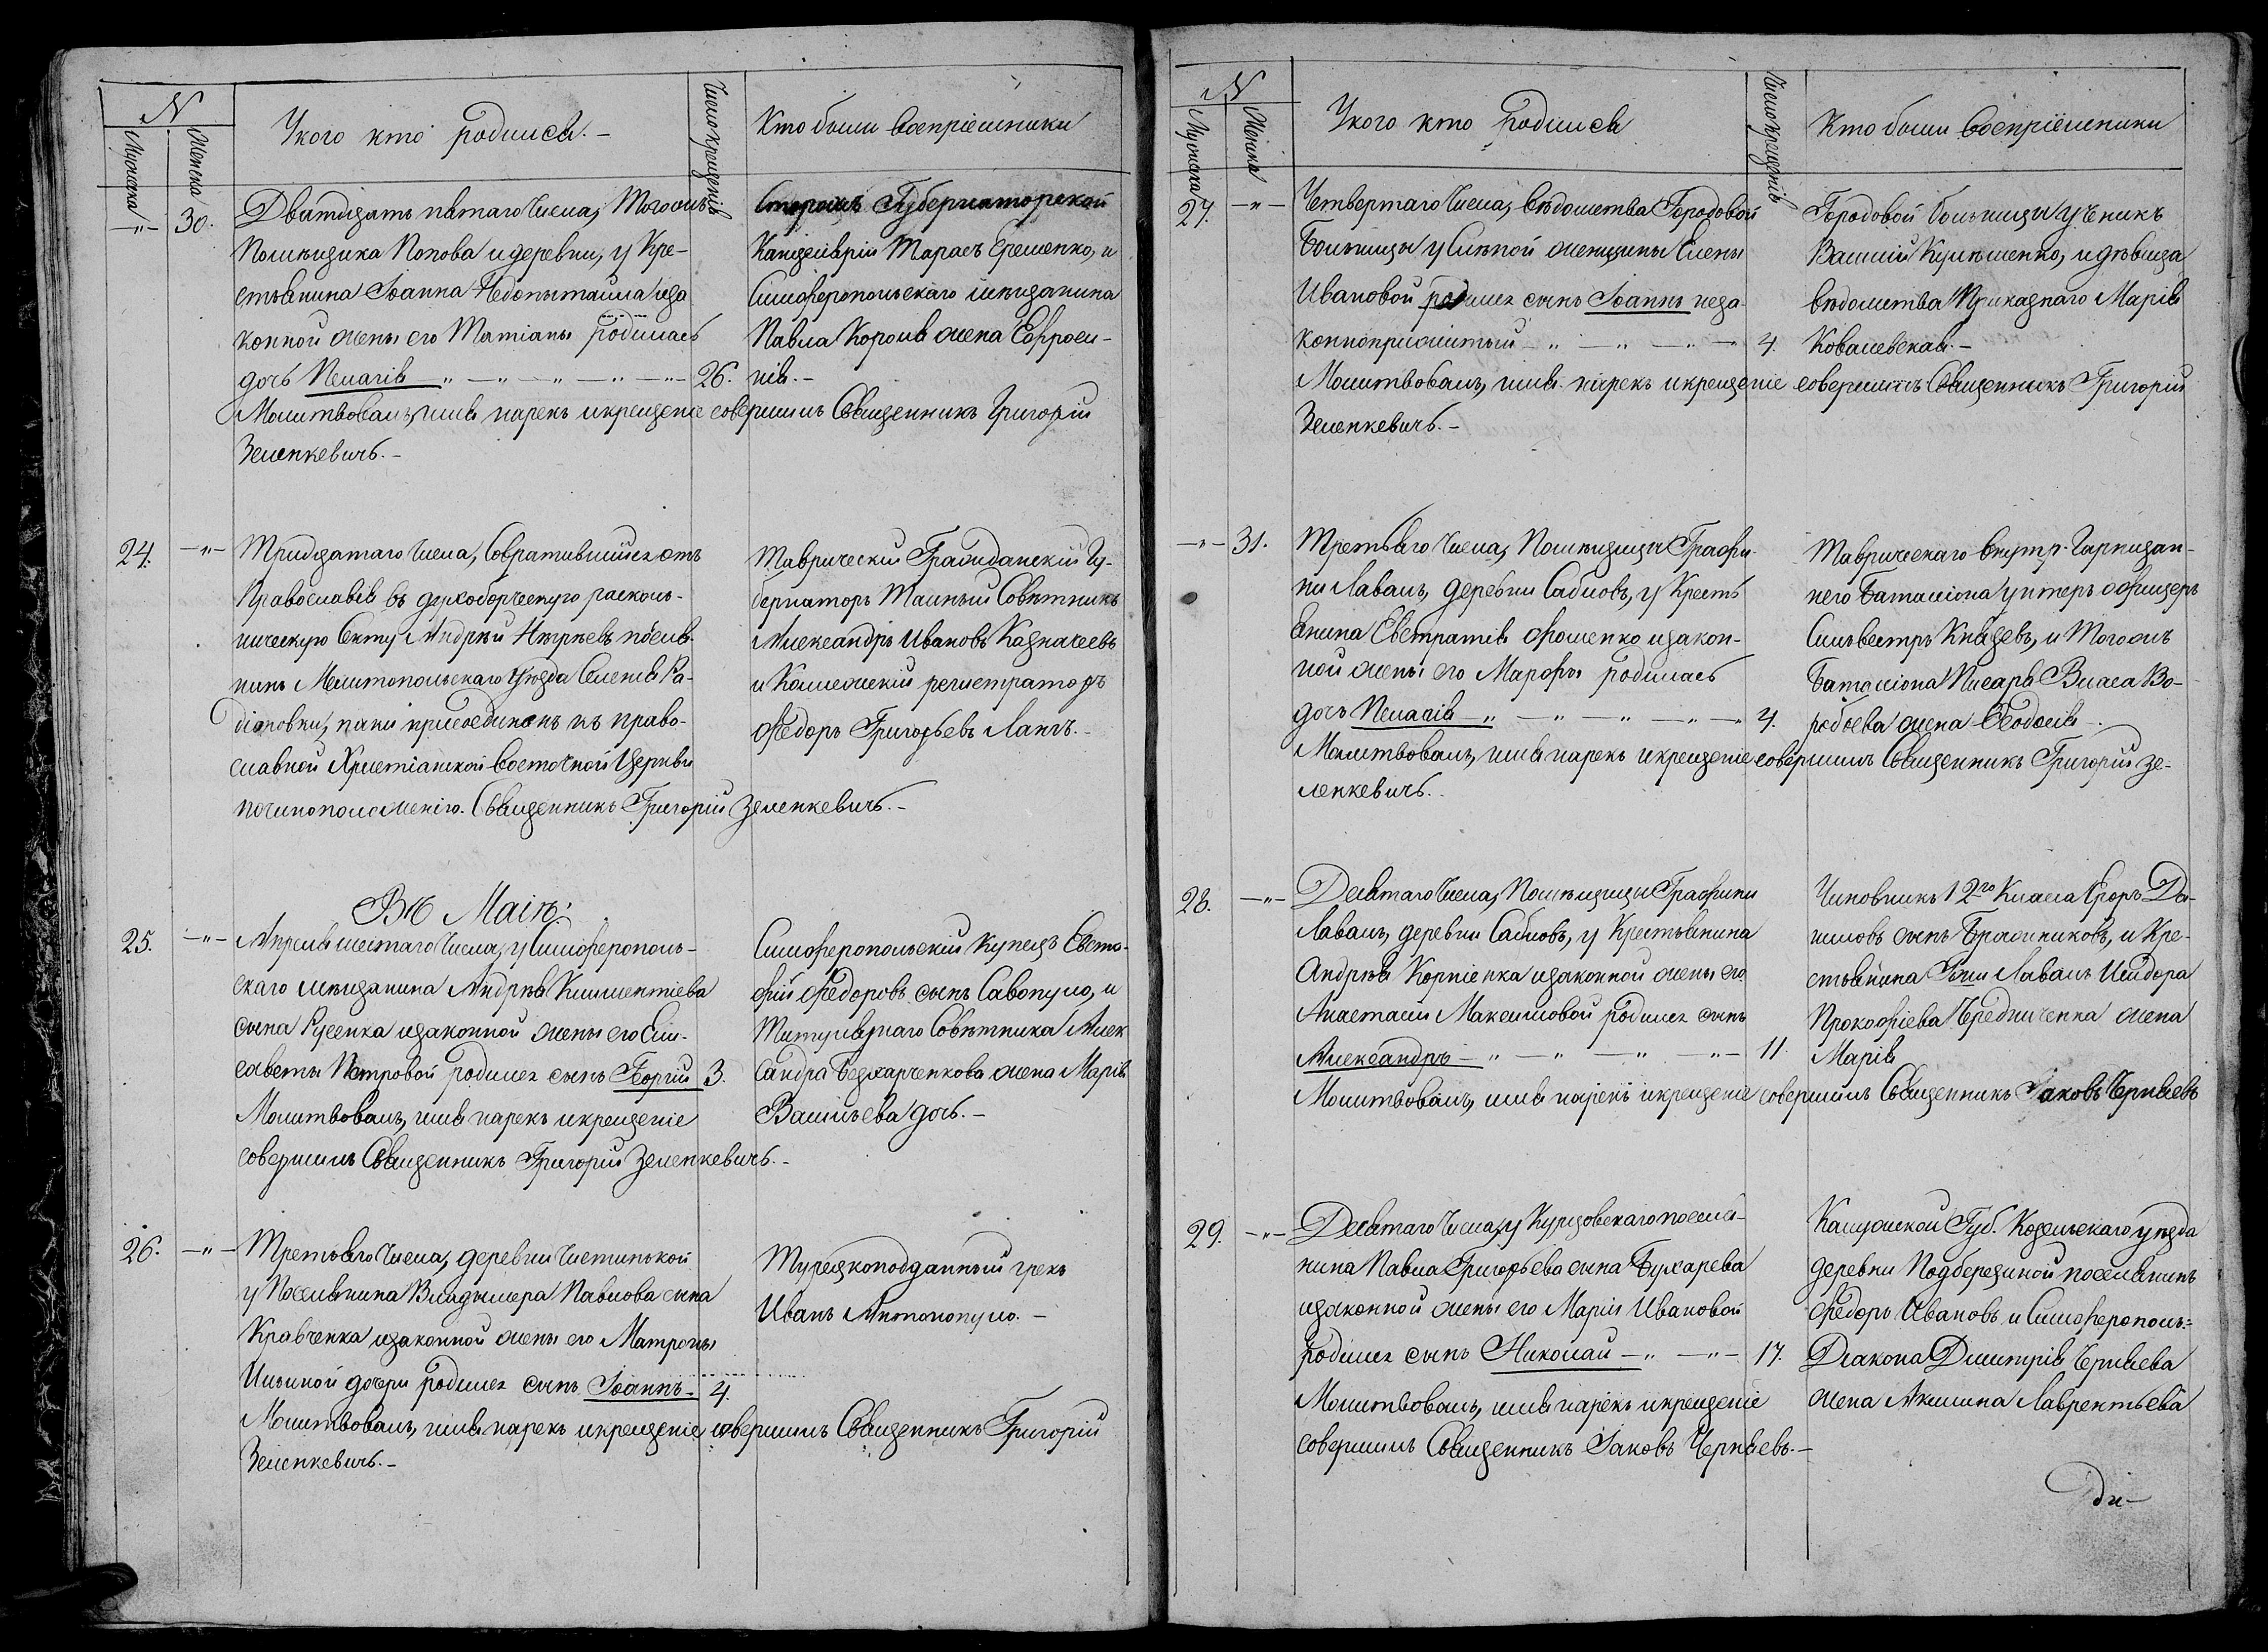 N
Мужеска
Женска
У кого кто родился. –
Число крещенія
Кто были воспріемники
–„– 30.
Двадцать пятаго числа, тогожъ
Помѣщика Попова и деревни, у Кре-
стьянина Іоанна и за
конной жены его Татіаны родилась
дочь Пелагія 26.
Сторожъ Губернаторской
Канцеляріи Тарасъ Еременко, и
Симферопольскаго мѣщанина
Павла Короля жена Евфроси-
нія. –
Молитвовалъ, имя нарекъ и крещеніе совершилъ Священникъ Григорій
Зеленкевичъ. –
24. –„–
Тридцатаго числа, Совратившійся отъ
Православія въ духоборческую расколь-
ническую Секту Андрей поселя-
нинъ Мелитопольскаго Уѣзда Селенія Ра-
діоновки, паки присоединенъ къ право-
славной Христіанской Восточной Церкви
по чиноположенію. Священникъ Григорій Зеленкевичъ. –
Таврическій Гражданскій Гу-
бернаторъ Тайный Совѣтникъ
Александръ Ивановъ Казначеевъ
и Коллежскій регистраторъ
Ѳедоръ Григорьевъ Лангъ. –
Въ Маіѣ:
25. –„–
Апреля шестаго числа, у Симферополь-
скаго мѣщанина Андрея Климентіева
сына Русенка и законной жены его Ели-
саветы Петровой родился сынъ Георгій 3.
Симферопольскій Купецъ Евста-
фій Ѳедоровъ сынъ Савопуло, и
Титулярнаго Совѣтника Алек
сандра Безхарченкова жена Марія
Васильева дочь. –
Молитвовалъ, имя нарекъ и крещеніе
совершилъ Священникъ Григорій Зеленкевичъ. –
26. –„–
Третьяго числа, деревни Чистинькой
у Поселянина Владымера Павлова сына
Кравченка и законной жены его Матроны
Ильиной дочери родился сынъ Іоаннъ – 4.
Турецкоподданный грекъ
Иванъ Антонопуло. –
Молитвовалъ, имя нарекъ и крещеніе совершилъ Священникъ Григорій
Зеленкевичъ. –
N
Мужска
Женска
У кого кто родился
Число крещенія
Кто были воспріемники
27. –„–
Четвертаго числа, вѣдомства Городовой
Больницы у Сивной женщины Елены
Ивановой родился сынъ Іоаннъ неза-
конноприжитый 4.
Городовой больницы ученикъ
Василій Кулѣшенко, и дѣвица
вѣдомства Приказнаго Марія
Ковалевская. –
Молитвовалъ, имя нарекъ и крещеніе совершилъ Священникъ Григорій
Зеленкевичъ. –
–„– 31.
Третьяго числа, Помѣщицы Графи-
ни Лаваль, деревни Сабловъ, у Кресть
янина Евстратія Фоменко и закон-
ной жены его Марѳы родилась
дочь Пелагія 4.
Таврическаго внутр. Гарнизон-
наго Баталіона унтеръ офицеръ
Сильвестръ Князевъ, и тогожъ
Баталіона Писаря Власа Во-
робьева жена Ѳеодосія –.
Молитвовалъ, имя нарекъ и крещеніе совершилъ Священникъ Григорій Зе-
ленкевичъ.
28. –„–
Девятаго числа, Помѣщицы Графини
Лаваль, деревни Сабловъ, у Крестьянина
Андрея Корніенка и законной жены его
Анастасіи Максимовой родился сынъ
Александръ – 11.
Чиновникъ 12го Класса Егоръ Да-
ниловъ сынъ Бражниковъ, и Кре-
стьянина Г-ни Лаваль Исидора
Прокофіева Чередниченка жена
Марія
Молитвовалъ, имя нарекъ и крещеніе совершилъ Священникъ Іаковъ Чернявевъ
29. –„–
Девятаго числа, у Курцовскаго поселя-
нина Павла Григорьева сына Бухарева
и законной жены его Маріи Ивановой
родился сынъ Николай – 17.
Калужской Губ. Козельскаго уѣзда
деревни Подберезиной поселянинъ
Ѳедоръ Ивановъ и Симферополь:
Діакона Димитрія Чернявева
жена Акилина Лаврентьева
Молитвовалъ, имя нарекъ и крещеніе
совершилъ Священникъ Іаковъ Чернявевъ. –